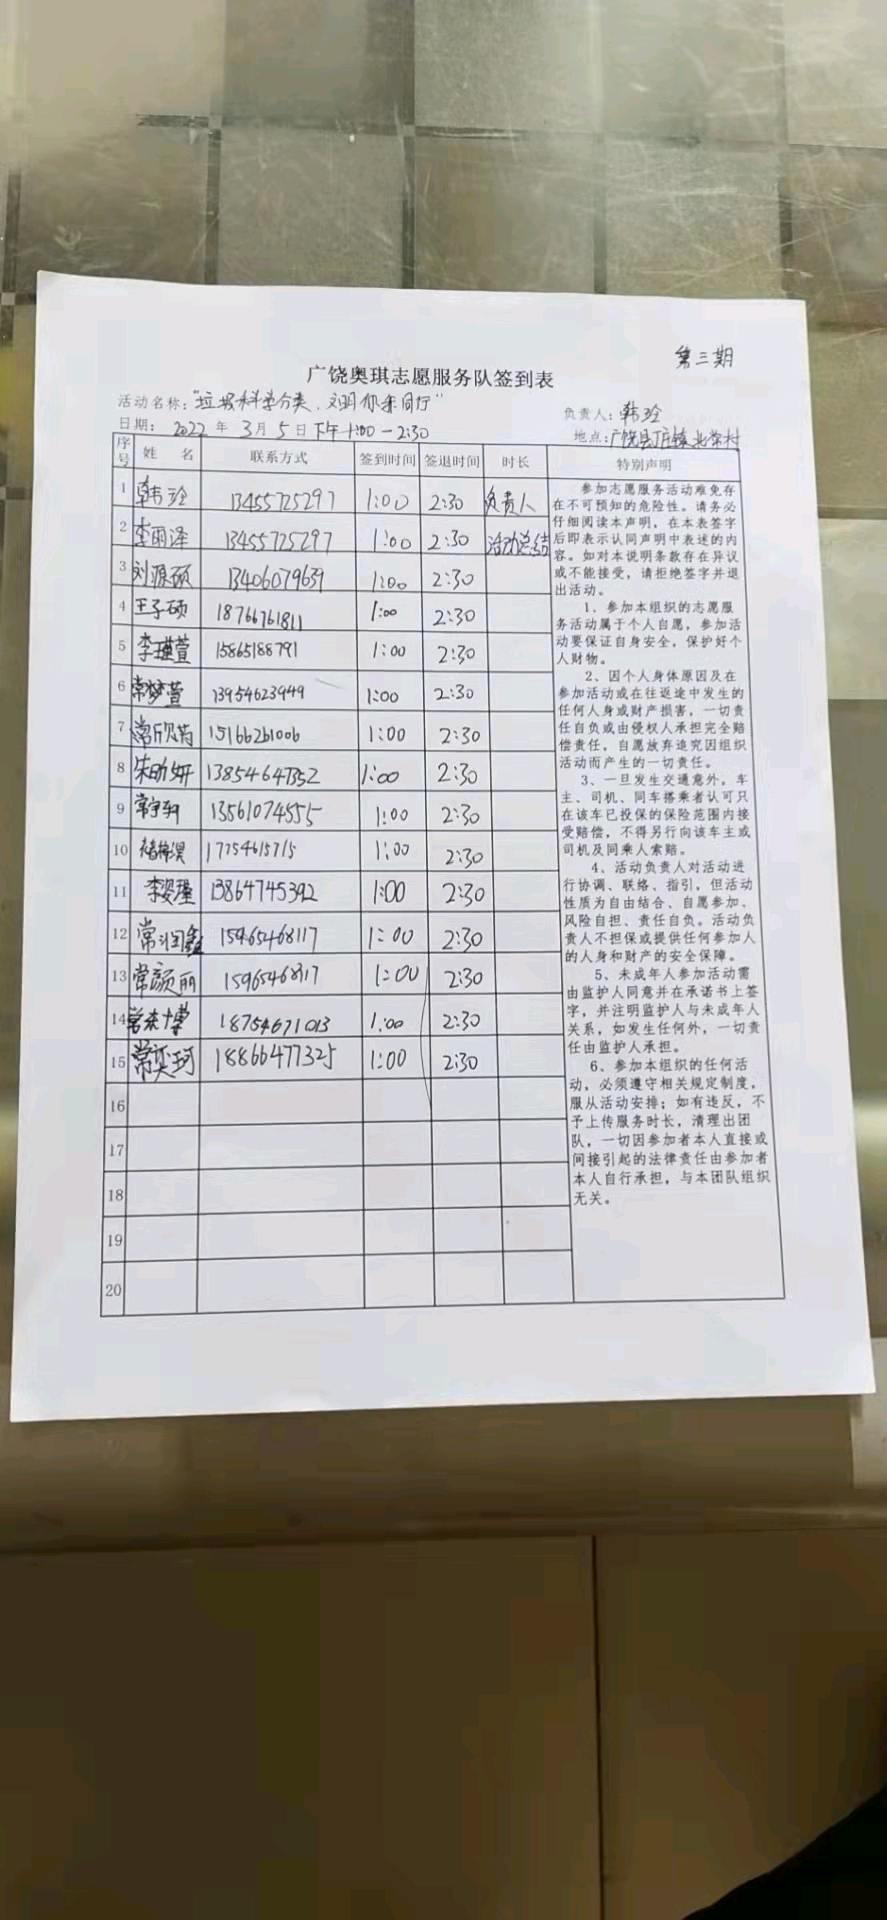 第三期
广饶奥琪志愿服务队签到表
活动名称："垃圾科学分类，文明你来同行"
负责人：韩玲
日期：2022年3月5日下午1:00－2:30
地点：广饶县
序号 姓名 联系方式 签到时间 签退时间 时长 特别声明
1 韩玲 13455725297 1:00 2:30 负责人
2 李雨泽 13455725297 1:00 2:30 活动总结
3 刘源硕 13406079639 1:00 2:30
4 王子硕 18766761811 1:00 2:30
5 李瑾萱 15865188791 1:00 2:30
6 常梦萱 13954623949 1:00 2:30
7 常欣 15166261006 1:00 2:30
8 朱 妍 13854647352 1:00 2:30
9 常宇 13561074555 1:00 2:30
10 17754615715 1:00 2:30
11 李姿瑾 13864745392 1:00 2:30
12 常润鑫 15965468117 1:00 2:30
13 常颜丽 15965468317 1:00 2:30
14 常 博 18754671013 1:00 2:30
15 常奕珂 18866477325 1:00 2:30
16
17
18
19
20
参加志愿服务活动难免存
在不可预知的危险性。请务必
仔细阅读本声明，在本表签字
后即表示认同声明中表述的内
容。如对本说明条款存在异议
或不能接受，请拒绝签字并退
出活动。
1、参加本组织的志愿服
务活动属于个人自愿，参加活
动要保证自身安全，保护好个
人财物。
2、因个人身体原因及在
参加活动或在往返途中发生的
任何人身或财产损害，一切责
任自负或由侵权人承担完全赔
偿责任，自愿放弃追究因组织
活动而产生的一切责任。
3、一旦发生交通意外，车
主、司机、同车搭乘者认可只
在该车已投保的保险范围内接
受赔偿，不得另行向该车主或
司机及同乘人索赔。
4、活动负责人对活动进
行协调、联络、指引，但活动
性质为自由结合、自愿参加、
风险自担、责任自负。活动负
责人不担保或提供任何参加人
的人身和财产的安全保障。
5、未成年人参加活动需
由监护人同意并在承诺书上签
字，并注明监护人与未成年人
关系，如发生任何外，一切责
任由监护人承担。
6、参加本组织的任何活
动，必须遵守相关规定制度，
服从活动安排；如有违反，不
予上传服务时长，清理出团
队，一切因参加者本人直接或
间接引起的法律责任由参加者
本人自行承担，与本团队组织
无关。